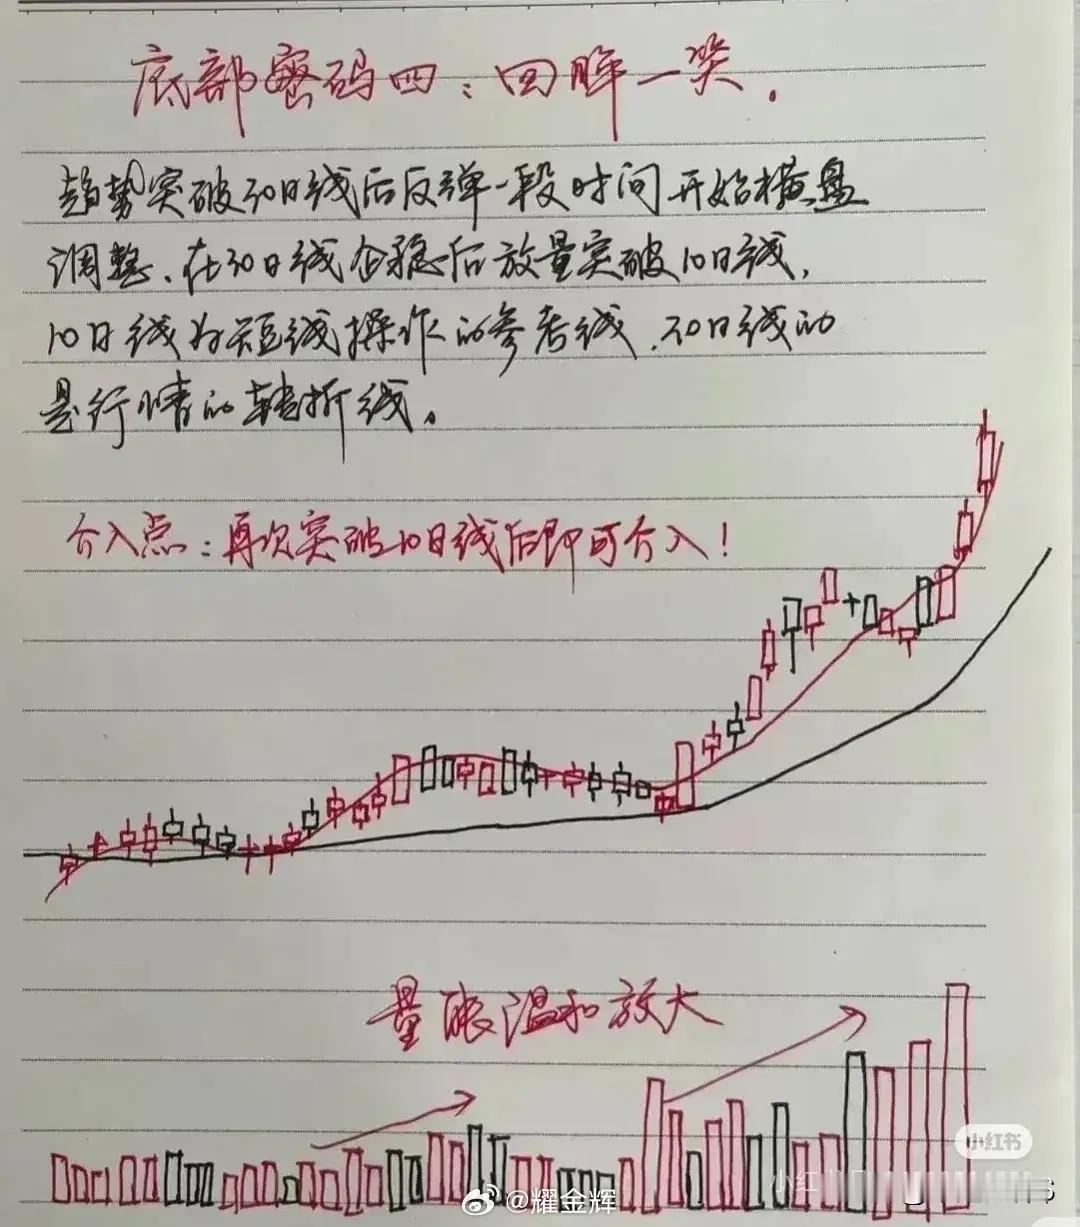 底部密码四：回眸一笑．
趋势突破30日线后反弹一段时间开始横盘
调整、在30日线企稳后放量突破10日线，
10日线为短线操作的参考线．30日线的
是行情的转折线。
介入点：再次突破10日线后即可介入！
量眼温和放大
小红书
@耀金辉